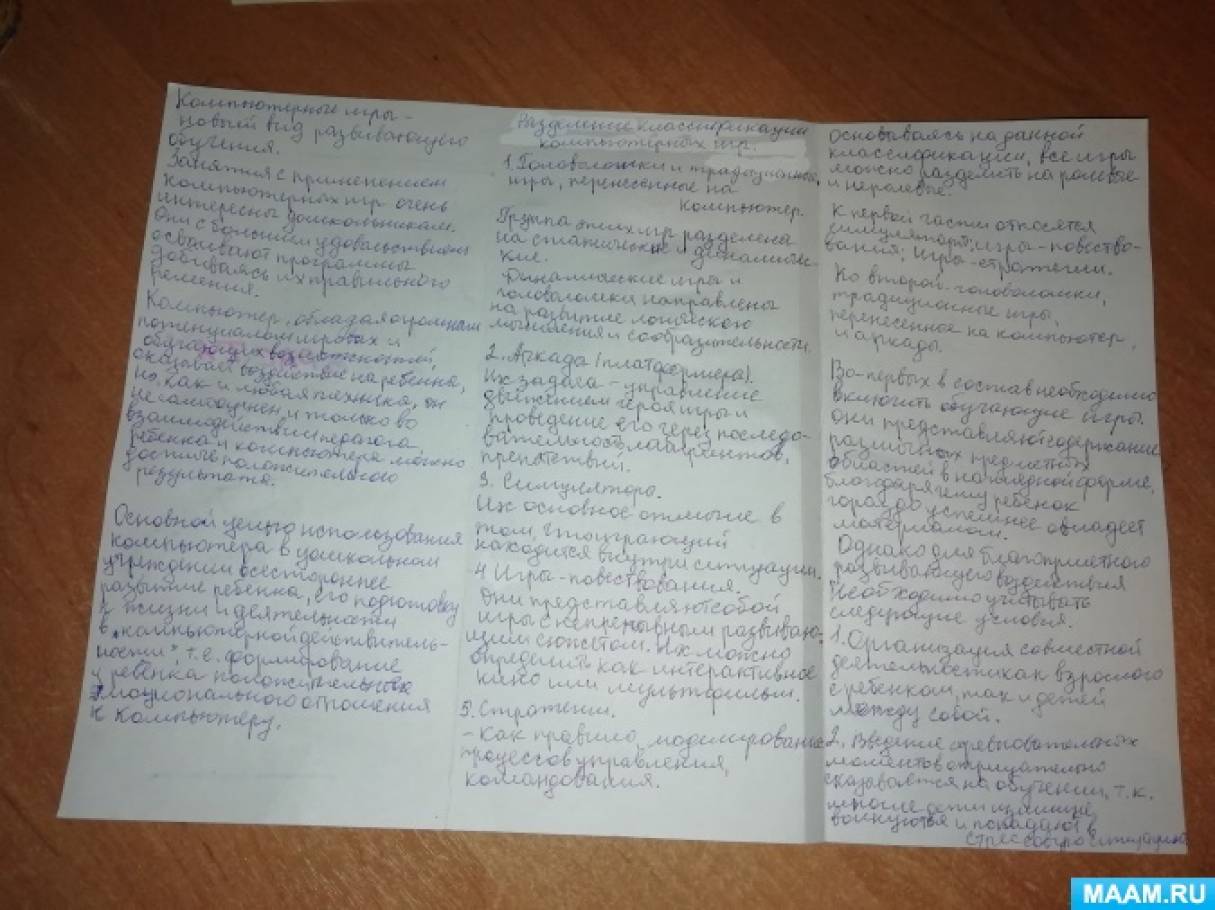 Компьютерные игры -
новый вид развивающего
обучения.
Занятия с применением
компьютерных игр очень
интересны дошкольникам.
Они с большим удовольствием
осваивают программы
добиваясь их правильного
решения.
Компьютер, обладая огромным
потенциалом игровых и
обучающих возможностей,
оказывает воздействие на ребенка,
но, как и любая техника, он
не самоценен, и только во
взаимодействии педагога
ребенка и компьютера можно
достичь положительного
результата.
Основной целью использования
компьютера в дошкольном
учреждении всестороннее
развитие ребенка, его подготовку
к жизни и деятельности
в "компьютерной действитель-
ности", т.е. формирование
у ребенка положительного
эмоционального отношения
к компьютеру.
Разделение классификации
компьютерных игр.
1. Головоломки и традиционные
игры, перенесенные на
компьютер.
Группа этих игр разделена
на статические и динамичес-
кие.
Динамические игры и
головоломки направлены
на развитие логического
мышления и сообразительности.
2. Аркада (платформера).
Их задача - управление
движением героя игры и
проведение его через последо-
вательность лабиринтов,
препятствий.
3. Симулятора.
Их основное отличие в
том, что играющий
находится внутри ситуации.
4 Игры - повествования.
Они представляют собой
игры с непрерывным развиваю-
щим сюжетом. Их можно
определить как интерактивное
кино или мультфильм.
5. Стратегии.
- Как правило, моделирование
процессов управления,
командования.
основываясь на данной
классификации, все игры
можно разделить на ролевые
и неролевые.
К первой части относятся
симуляторы; игры - повество-
вания; игры - стратегии.
Ко второй - головоломки,
традиционные игры,
перенесенное на компьютер,
и аркады.
Во-первых в состав необходимо
включить обучающие игры.
они представляют содержание
различных предметных
областей в наглядной форме,
благодаря чему ребенок
гораздо успешнее овладеет
материалом.
Однако для благоприятного
развивающего воздействия
необходимо учитывать
следующие условия.
1. Организация совместной
деятельности как взрослого
с ребенком, так и детей
между собой.
2. Введение соревновательных
моментов отрицательно
сказывается на обучении, т.к.
многие дети излишне
волнуются и попадают в
стрессовую ситуацию
MAAM.RU